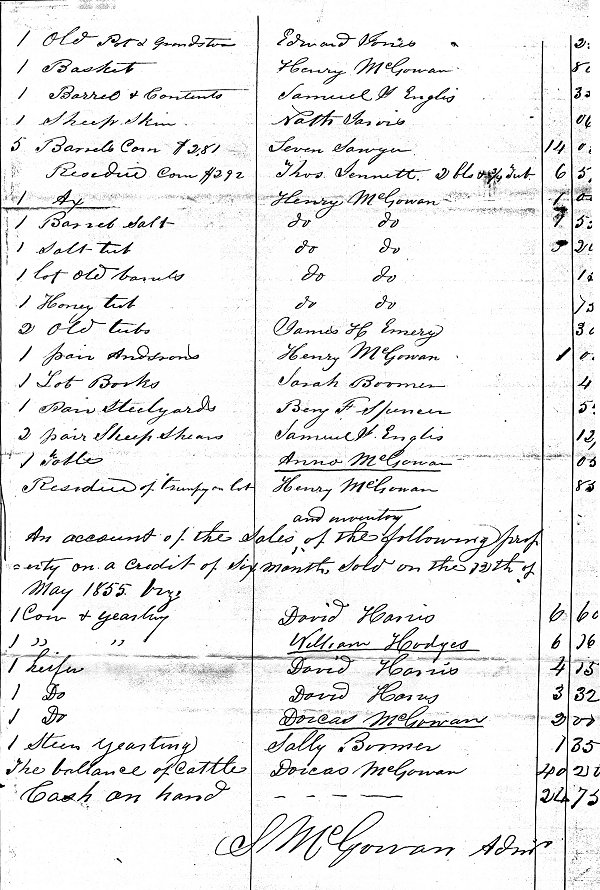 1 Old Pot & Grindstone Edward Jones 2
1 Basket Henry McGowan 80
1 Barrel & Contents Samuel Englis 35
1 Sheep Skin Nath Jarvis 06
5 Barrels Corn $2.81 Seven Sawyer 14 0
Residue Corn $2.92 Thos. Jennett 2 bls & Tub 6 5
1 Ax Henry McGowan 1 00
1 Barrel Salt do do 1 55
1 Salt tub do do 20
1 lot old barrels do do 12
1 Honey tub do do 75
2 Old tubs James H Emery 30
1 pair Andirons Henry McGowan 1 0
1 Lot Books Sarah Boomer 4
1 pair Steelyards Benj F Spencer 5
2 pair Sheep Shears Samuel Englis 12
1 Table Anna McGowan 05
Residue of lot Henry McGowan 85
and inventory
An account of the Sales, of the following prop
=erty on a credit of Six months, Sold on the 12th of
May 1855. Viz.
1 Cow & yearling David Harris 6 60
1 " " William Hodges 6 16
1 heifer David Harris 4 15
1 Do David Harris 3 32
1 Do Dorcas McGowan 2 00
1 Steer Yearling Sally Boomer 1 35
The ballance of Cattle Dorcas McGowan 40 20
Cash on hand - - - - 24 75
S McGowan Admr